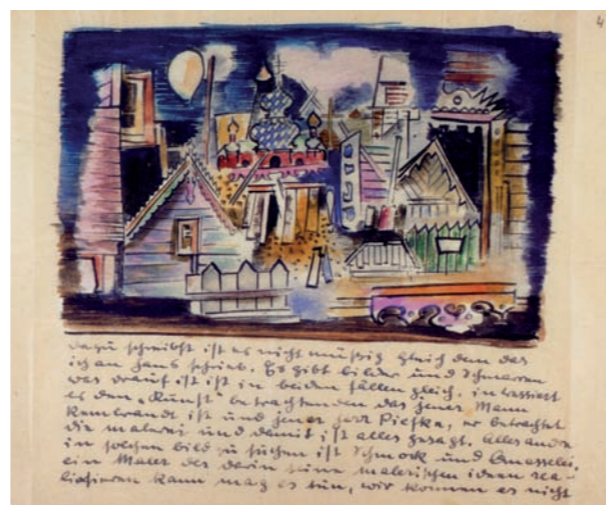 4
dazu schreibst ist es nicht müßig gleich dem das
ich an Hans schrieb. Es gibt bilder und Schmarren
was drauf ist ist in beiden fällen gleich. intressiert
es den „Kunst" betrachtenden das jener Mann
Rembrandt ist und jener Herr Piefke, er betrachtet
die malerei und damit ist alles gesagt. Alles andre
in solchem bild zu suchen ist Schmock und Quasselei.
ein Maler der darin seine malerischen ideen rea-
lisieren kann mag es tun, wir können es nicht